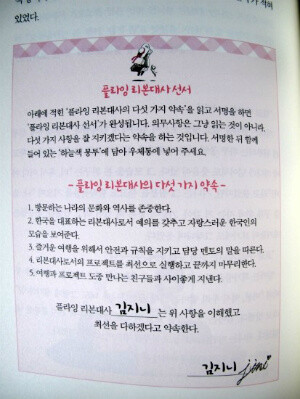 있었다.
플라잉 리본대사 선서
아래에 적힌 '플라잉 리본대사의 다섯 가지 약속'을 읽고 서명을 하면
'플라잉 리본대사 선서'가 완성됩니다. 의무사항은 그냥 읽는 것이 아니라,
다섯 가지 사항을 잘 지키겠다는 약속을 하는 것입니다. 서명한 뒤 함께
들어 있는 '하늘색 봉투'에 담아 우체통에 넣어 주세요.
- 플라잉 리본대사의 다섯 가지 약속 -
1. 방문하는 나라의 문화와 역사를 존중한다.
2. 한국을 대표하는 리본대사로서 예의를 갖추고 자랑스러운 한국인의
모습을 보여준다.
3. 즐거운 여행을 위해서 안전과 규칙을 지키고 담당 멘토의 말을 따른다.
4. 리본대사로서의 프로젝트를 최선으로 실행하고 끝까지 마무리한다.
5. 여행과 프로젝트 도중 만나는 친구들과 사이좋게 지낸다.
플라잉 리본대사 김지니 는 위 사항을 이해했고
최선을 다하겠다고 약속한다.
김지니 jini